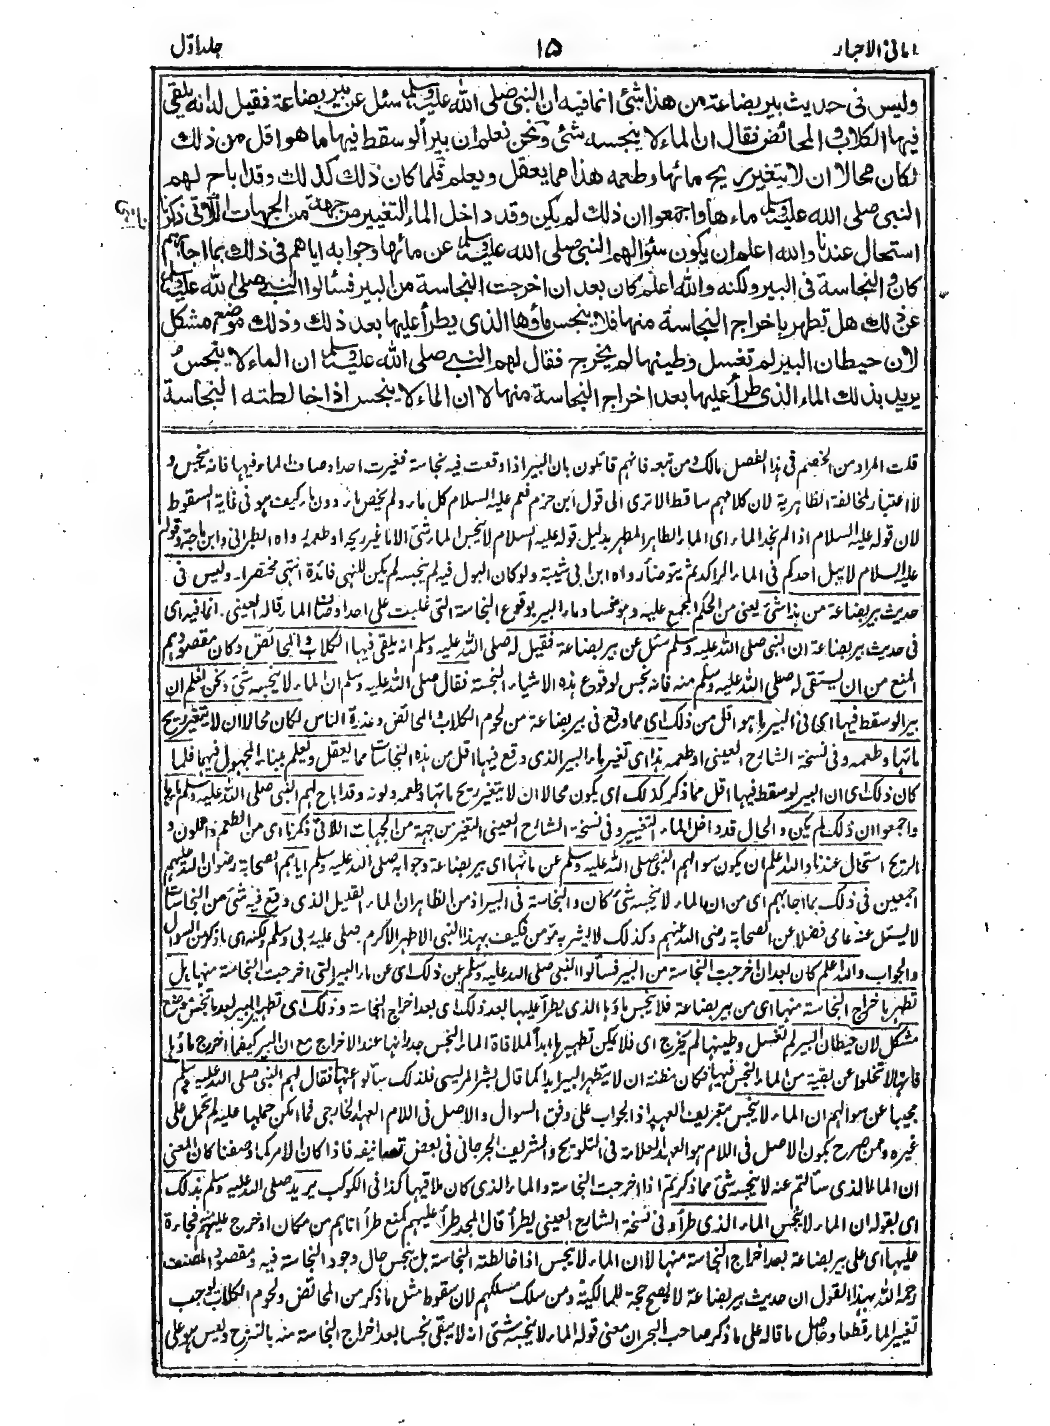 امانی الاحبار ۱۵ جلد اول
وليس فى حديث بير بضاعة من هذا شئ انما فيه ان النبى صلى الله عليه وسلم سئل عن بير بضاعة فقيل له انه يلقى
فيها الكلاب والمحائض فقال ان الماء لا ينجسه شئ ونحن نعلم ان بيرا لو سقط فيها ما هو اقل من ذلك
لكان محالا ان لا يتغير ريح مائها وطعمه هذا مما يعقل ويعلم فلما كان ذلك كذلك وقد اباح لهم
النبى صلى الله عليه وسلم ماءها واجمعوا ان ذلك لم يكن وقد داخل الماء التغيير من جهة من الجهات اللاتى ذكرنا
استحال عندنا والله اعلم ان يكون سؤالهم النبى صلى الله عليه وسلم عن مائها وجوابه اياهم فى ذلك بما اجابهم
كان والنجاسة فى البير ولكنه والله اعلم كان بعد ان اخرجت النجاسة من البير فسألوا النبى صلى الله عليه وسلم
عن ذلك هل تطهر باخراج النجاسة منها فلا ينجس ماؤها الذى يطرأ عليها بعد ذلك وذلك موضع مشكل
لان حيطان البير لم تغسل وطينها لم يخرج فقال لهم النبى صلى الله عليه وسلم ان الماء لا ينجس
يريد بذلك الماء الذى طرأ عليها بعد اخراج النجاسة منها لا ان الماء لا ينجس اذا خالطته النجاسة
قلت المراد من الخصم فى هذا الفصل مالك ومن تبعه فانهم قائلون بان البير اذا وقعت فيه نجاسة فغيرت احد اوصاف الماء فيها فانه ينجس و
لا اعتبار لمخالفة الظاهرية لان كلامهم ساقط الا ترى الى قول ابن حزم فعم عليه السلام كل ماء ولم يخص ماء دون ماء كيف هو فى غاية السقوط
لان قوله عليه السلام اذا لم نجد الماء اى الماء الطاهر المطهر بدليل قوله عليه السلام لا ينجس الماء شئ الا ما غير ريحه او طعمه رواه الطبرانى وابن ماجة وقوله
عليه السلام لا يبل احدكم فى الماء الراكد ثم يتوضأ رواه ابن ابى شيبة ولو كان البول فيه لم ينجسه لم يكن للنهى فائدة انتهى مختصرا۔ وليس فى
حديث بير بضاعة من هذا شئ يعنى من الحكم المجمع عليه وهو فساد ماء البير بوقوع النجاسة التى غلبت على احد اوصاف الماء قاله العينى۔ انما فيه اى
فى حديث بير بضاعة ان النبى صلى الله عليه وسلم سئل عن بير بضاعة فقيل له صلى الله عليه وسلم انه يلقى فيها الكلاب والمحائض وكان مقصودهم
المنع من ان يستقى له صلى الله عليه وسلم منه فانه نجس لوقوع هذه الاشياء النجسة فقال صلى الله عليه وسلم ان الماء لا ينجسه شئ ونحن نعلم ان
بيرا لو سقط فيها اى فى البير ما هو اقل من ذلك اى مما وقع فى بير بضاعة من لحوم الكلاب والمحائض وعذرة الناس لكان محالا ان لا يتغير ريح
مائها وطعمه وفى نسخة الشارح العينى او طعمه هذا اى تغير ماء البير الذى وقع فيها اقل من هذه النجاسات مما يعقل ويعلم فلما
كان ذلك اى ان البير لو سقط فيها اقل مما ذكر كذلك اى يكون محالا ان لا يتغير ريح مائها وطعمه ولونه وقد اباح لهم النبى صلى الله عليه وسلم ماءها
واجمعوا ان ذلك لم يكن والحال قد داخل الماء التغيير وفى نسخة الشارح العينى التغير من جهة من الجهات اللاتى ذكرنا اى من الطعم واللون و
الريح استحال عندنا والله اعلم ان يكون سوالهم النبى صلى الله عليه وسلم عن مائها اى بير بضاعة وجوابه صلى الله عليه وسلم اياهم الصحابة رضوان الله عليهم
اجمعين فى ذلك بما اجابهم اى من ان الماء لا ينجسه شئ كان والنجاسة فى البير اذ من الظاهر ان الماء القليل الذى وقع فيه شئ من النجاسات
لا يسئل عنه عامى فضلا عن الصحابة رضى الله عنهم وكذلك لا يشربه مؤمن فكيف بهذا النبى الاطهر الاكرم صلى عليه ربى وسلم ولكنه اى ما ذكر من السوال
والجواب والله اعلم كان بعد ان اخرجت النجاسة من البير فسألوا النبى صلى الله عليه وسلم عن ذلك اى عن ماء البير التى اخرجت النجاسة منها هل
تطهر باخراج النجاسة منها اى من بير بضاعة فلا ينجس ماؤها الذى يطرأ عليها بعد ذلك اى بعد اخراج النجاسة وذلك اى تطهير البير بعد ما تنجس موضع
مشكل لان حيطان البير لم تغسل وطينها لم يخرج اى فلا يمكن تطهير ماءها ابدا لملاقاة الماء النجس جدرانها عند الاخراج مع ان البير كيفما اخرج ماؤها
فانها لا تخلوا عن بقية من الماء النجس فيها فكان مظنة ان لا يتطهر البير ابدا كما قال بشر المريسى فلذلك سألوا عنها فقال لهم النبى صلى الله عليه وسلم
مجيبا عن سوالهم ان الماء لا ينجس بتعريف العهد اذ الجواب على وفق السوال والاصل فى اللام العهد الخارجى فما امكن حملها عليه لم تحمل على
غيره وممن صرح بكون الاصل فى اللام هو العهد العلامة فى التلويح والشريف الجرجانى فى بعض تصانيفه فاذا كان الامر كما وصفنا كان المعنى
ان الماء الذى سألتم عنه لا ينجسه شئ مما ذكرتم اذا اخرجت النجاسة والماء الذى كان ملاقيها كذا فى الكوكب يريد صلى الله عليه وسلم بذلك
اى بقوله ان الماء لا ينجس الماء الذى طرأ وفى نسخة الشارح العينى يطرأ قال المجد طرأ عليهم كمنع طرأ اتاهم من مكان او خرج عليهم منه فجاءة
عليها اى على بير بضاعة بعد اخراج النجاسة منها لا ان الماء لا ينجس اذا خالطته النجاسة بل ينجس حال وجود النجاسة فيه ومقصود المصنف
رحمه الله بهذا القول ان حديث بير بضاعة لا يصح حجة للمالكية ومن سلك مسلكهم لان سقوط مثل ما ذكر من المحائض ولحوم الكلاب يوجب
تغيير الماء قطعا وحاصل ما قاله على ما ذكر صاحب البحر ان معنى قوله الماء لا ينجسه شئ انه لا يبقى نجسا بعد اخراج النجاسة منه بالنزح وليس هو على